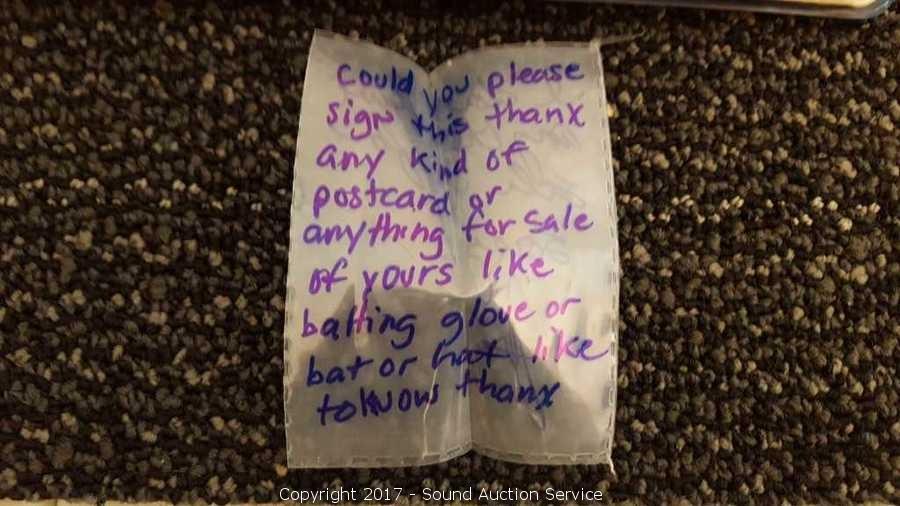 Could you please
sign this thanx
any kind of
postcard or
anything for sale
of yours like
batting glove or
bat or hat like
to know thanx
Copyright 2017 - Sound Auction Service